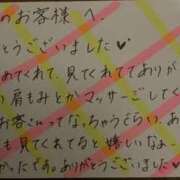 のお客様 へ.
とうございました♥
めてくれて、見てくれててありが
肩もみとかマッサーごしてく
お客さんってなっちゃうぐらい、あ
も見てくれてると嬉しいなぁー
かったです。ありがとうございました♥